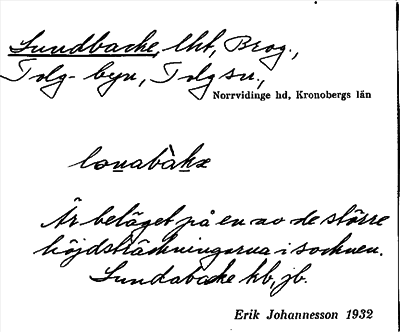 Sundbacke, lht, Brog.,
Tolg-byn, Tolg sn.,
Norrvidinge hd, Kronobergs län
Är beläget på en av de större
höjdsträckningarna i socknen.
Sundabacke hb, jb.
Erik Johannesson 1932